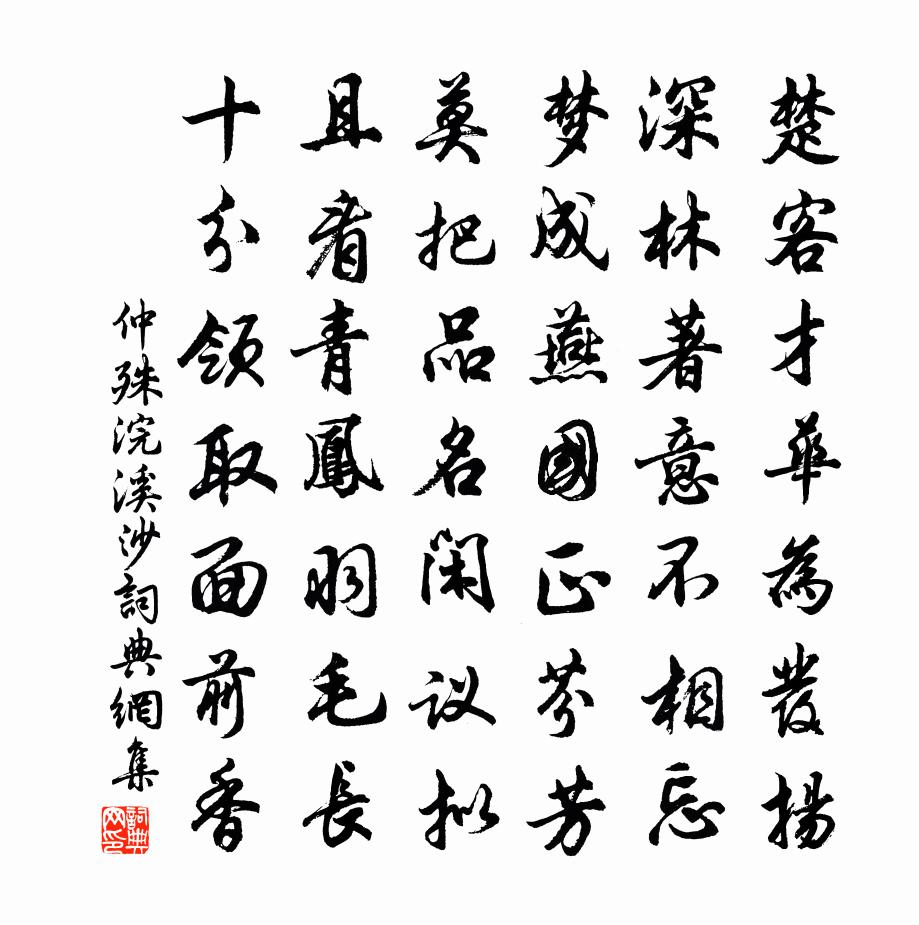 楚客才華為發揚
深林著意不相忘
梦成燕國正芬芳
莫把品名閑议拟
且看青鳳羽毛長
十分領取面前香
仲殊浣溪沙詞典網集
詞典网印